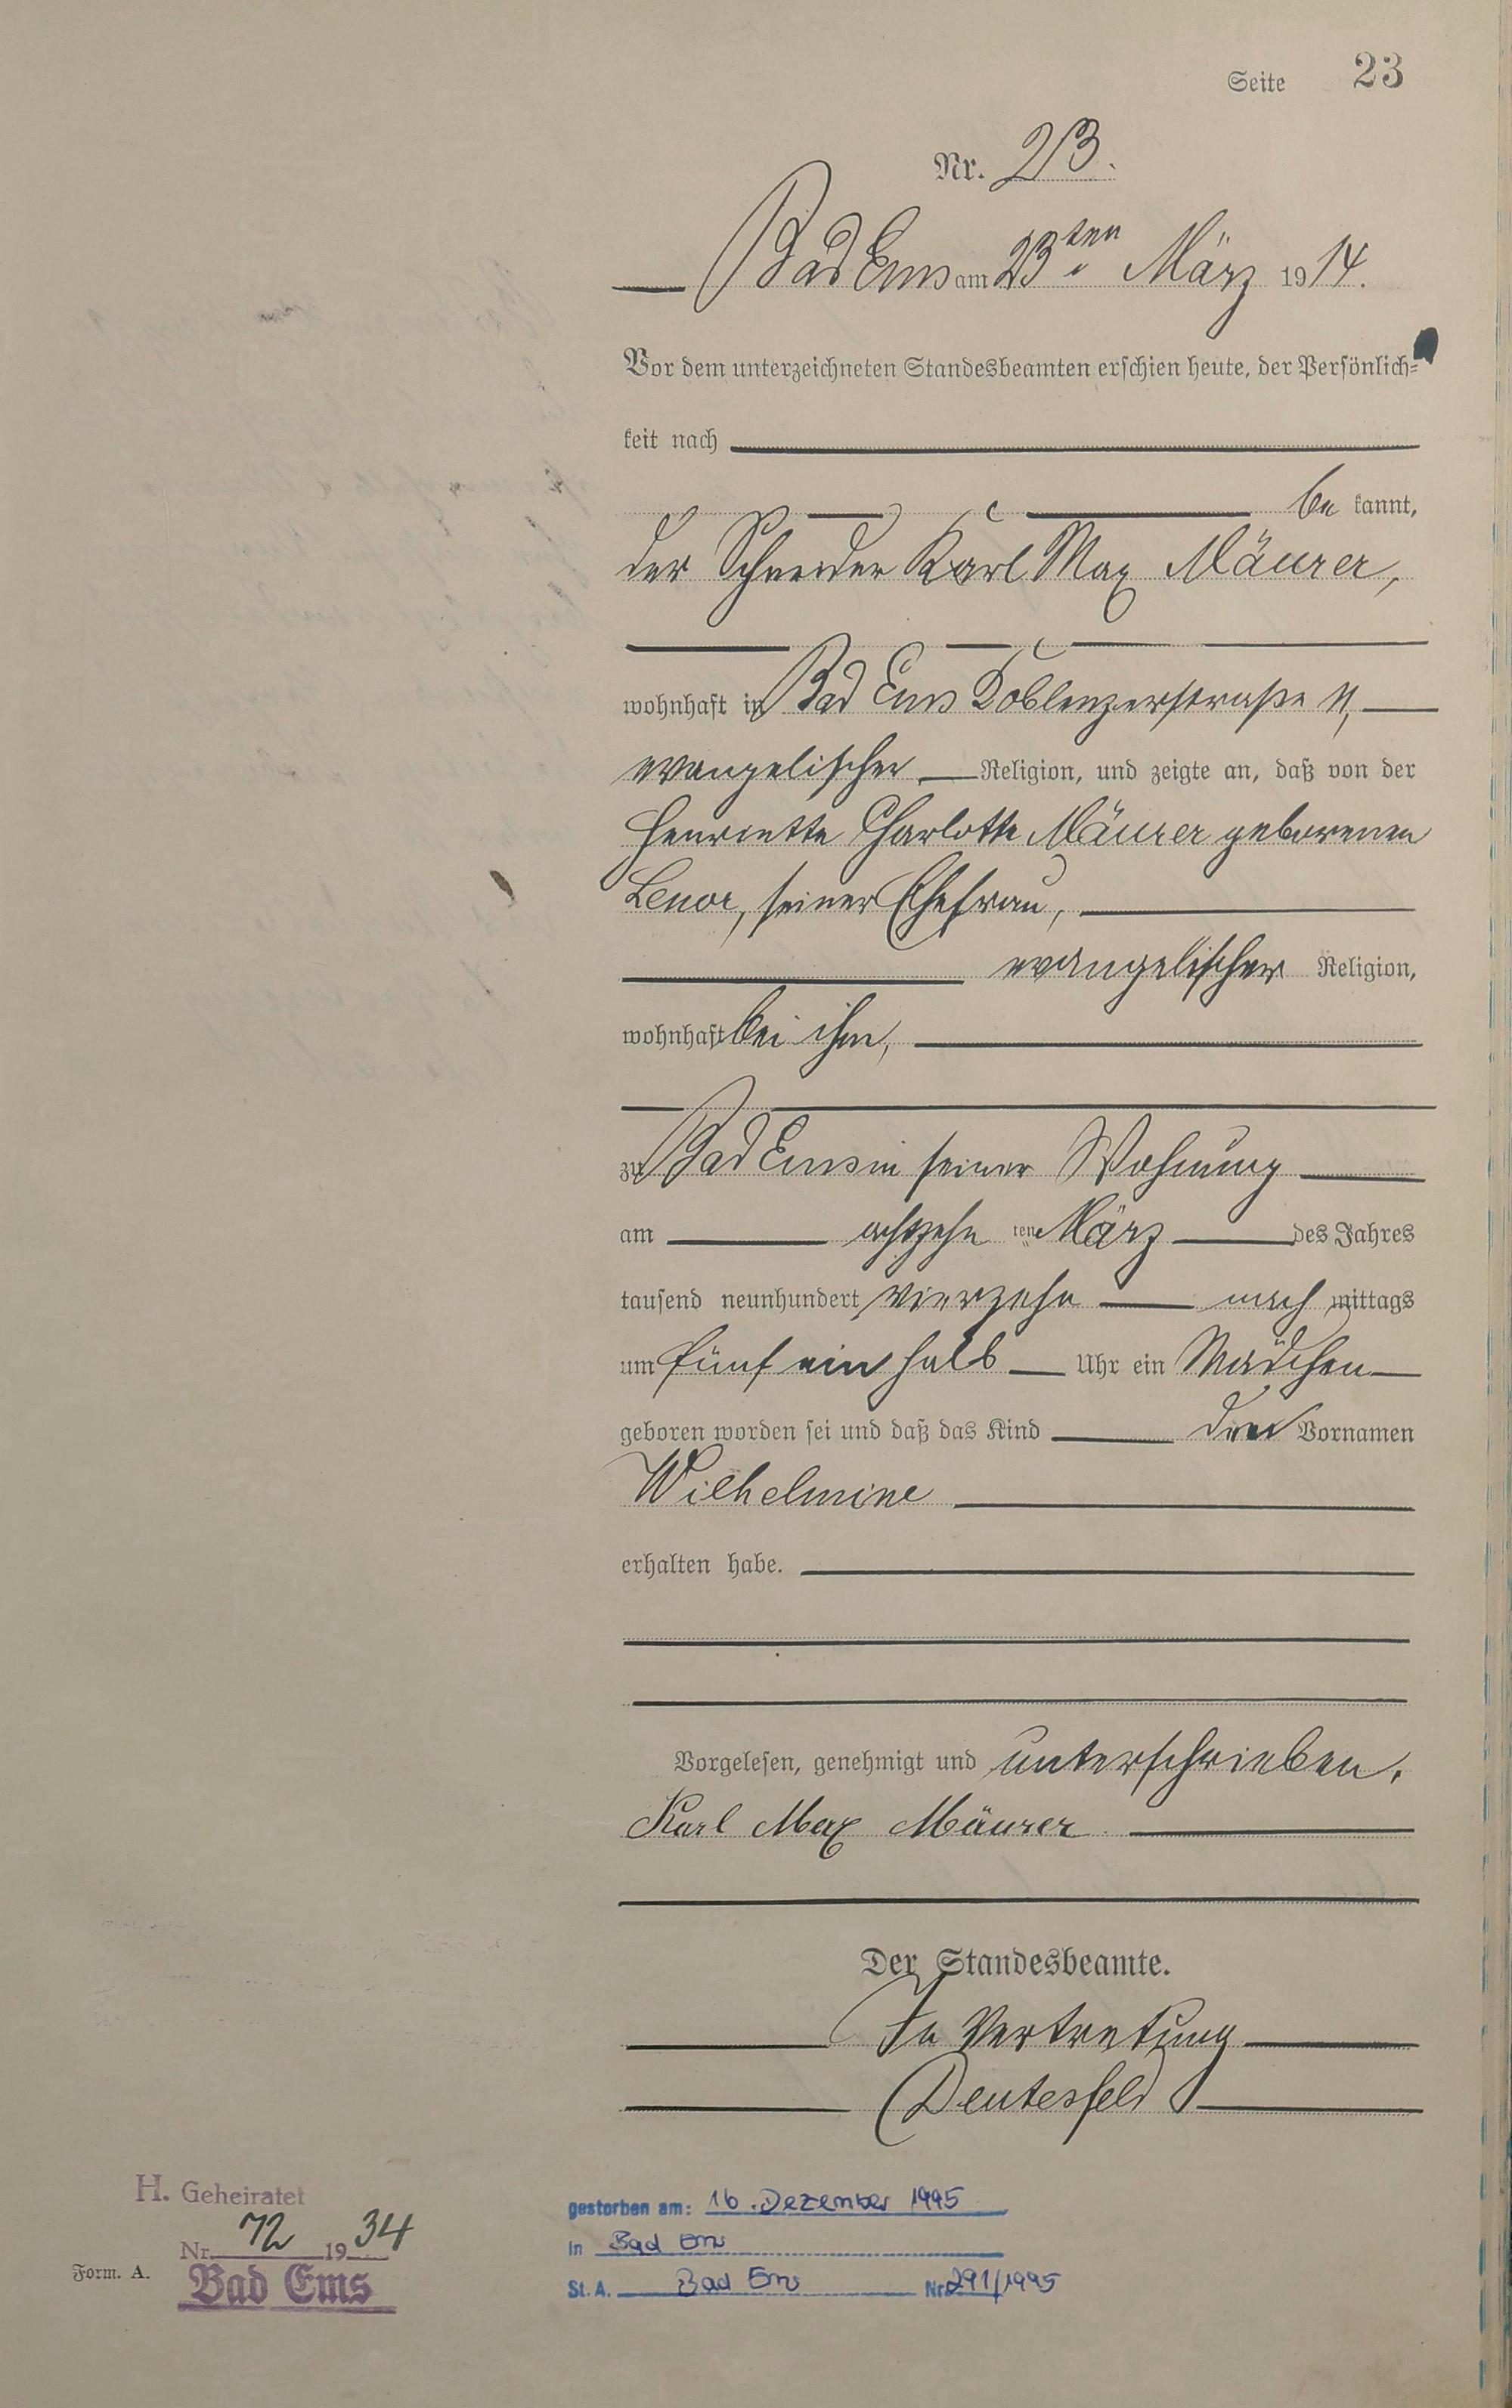 Seite 23
Nr. 23.
Bad Ems am 23ten März 1914.
Vor dem unterzeichneten Standesbeamten erschien heute, der Persönlich=
keit nach
be kannt,
der Schneider Karl Max Mäurer,
wohnhaft in Bad Ems Koblenzerstraße 11,
evangelischer Religion, und zeigte an, daß von der
Henriette Charlotte Mäurer geborenen
Lenor, seiner Ehefrau,
evangelischer Religion,
wohnhaft bei ihm,
zu Bad Ems in seiner Wohnung
am achtzehn ten März des Jahres
tausend neunhundert vierzehn nach mittags
um fünf ein halb Uhr ein Mädchen
geboren worden sei und daß das Kind den Vornamen
Wilhelmine
erhalten habe.
Vorgelesen, genehmigt und unterschrieben.
Karl Max Mäurer
Der Standesbeamte.
In Vertretung
Deutesfeld
H. Geheiratet
Nr. 72 1934
Form. A. Bad Ems
gestorben am: 16. Dezember 1995
in Bad Ems
St. A. Bad Ems Nr. 291/1995